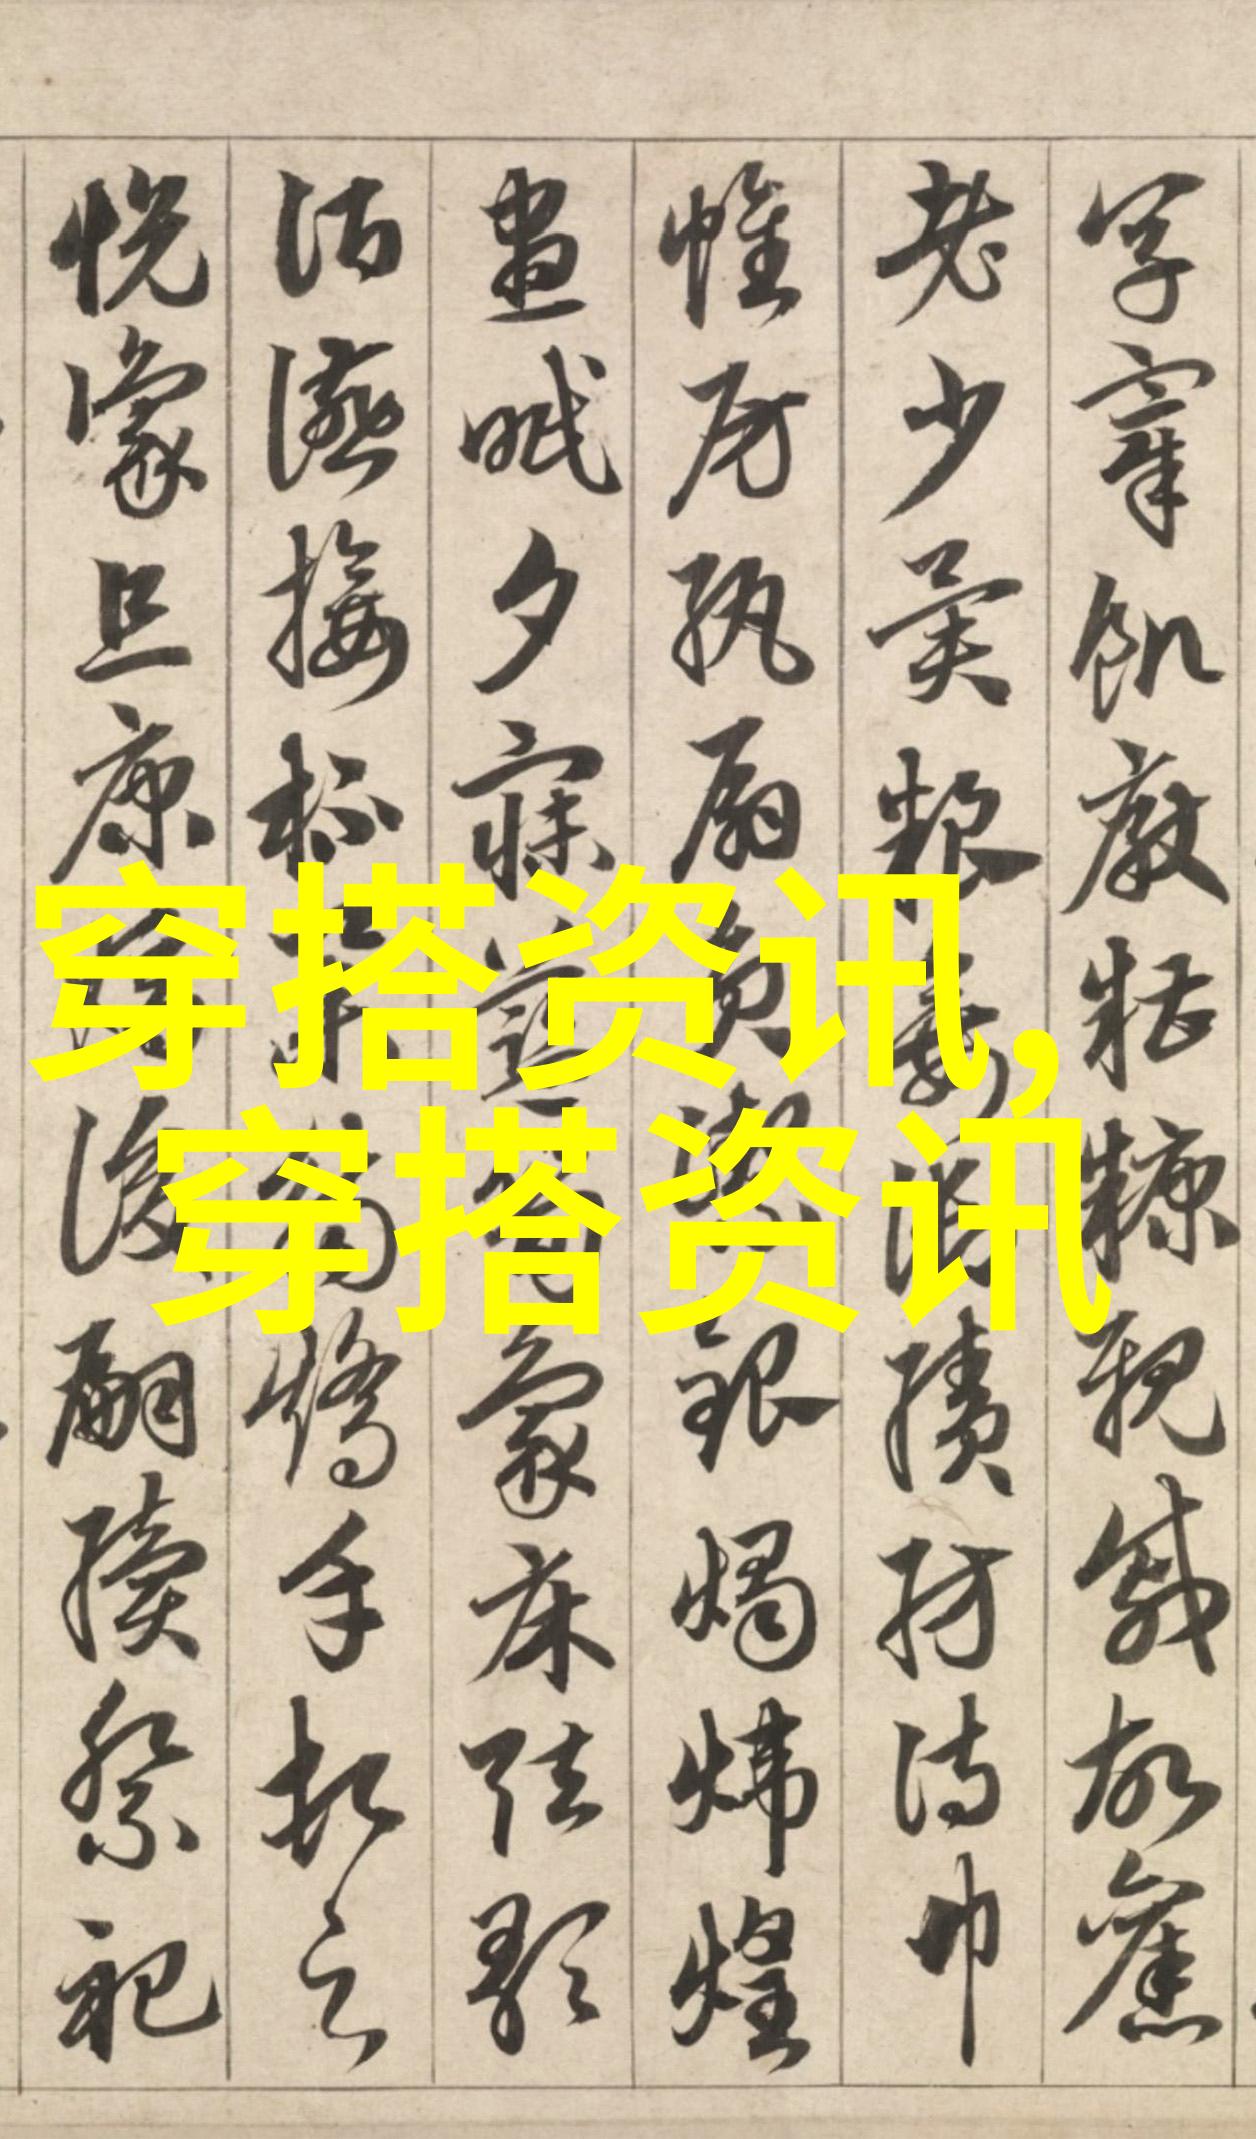 宰飢厭糟糠親戚故舊
老少異粮妾御績紡侍巾
帷房紈扇員潔銀燭煒煌
晝眠夕寐藍笋象床弦歌
酒讌接杯舉觴矯手頓足
悅豫且康嫡後嗣續祭祀
穿搭资讯,
穿搭资讯